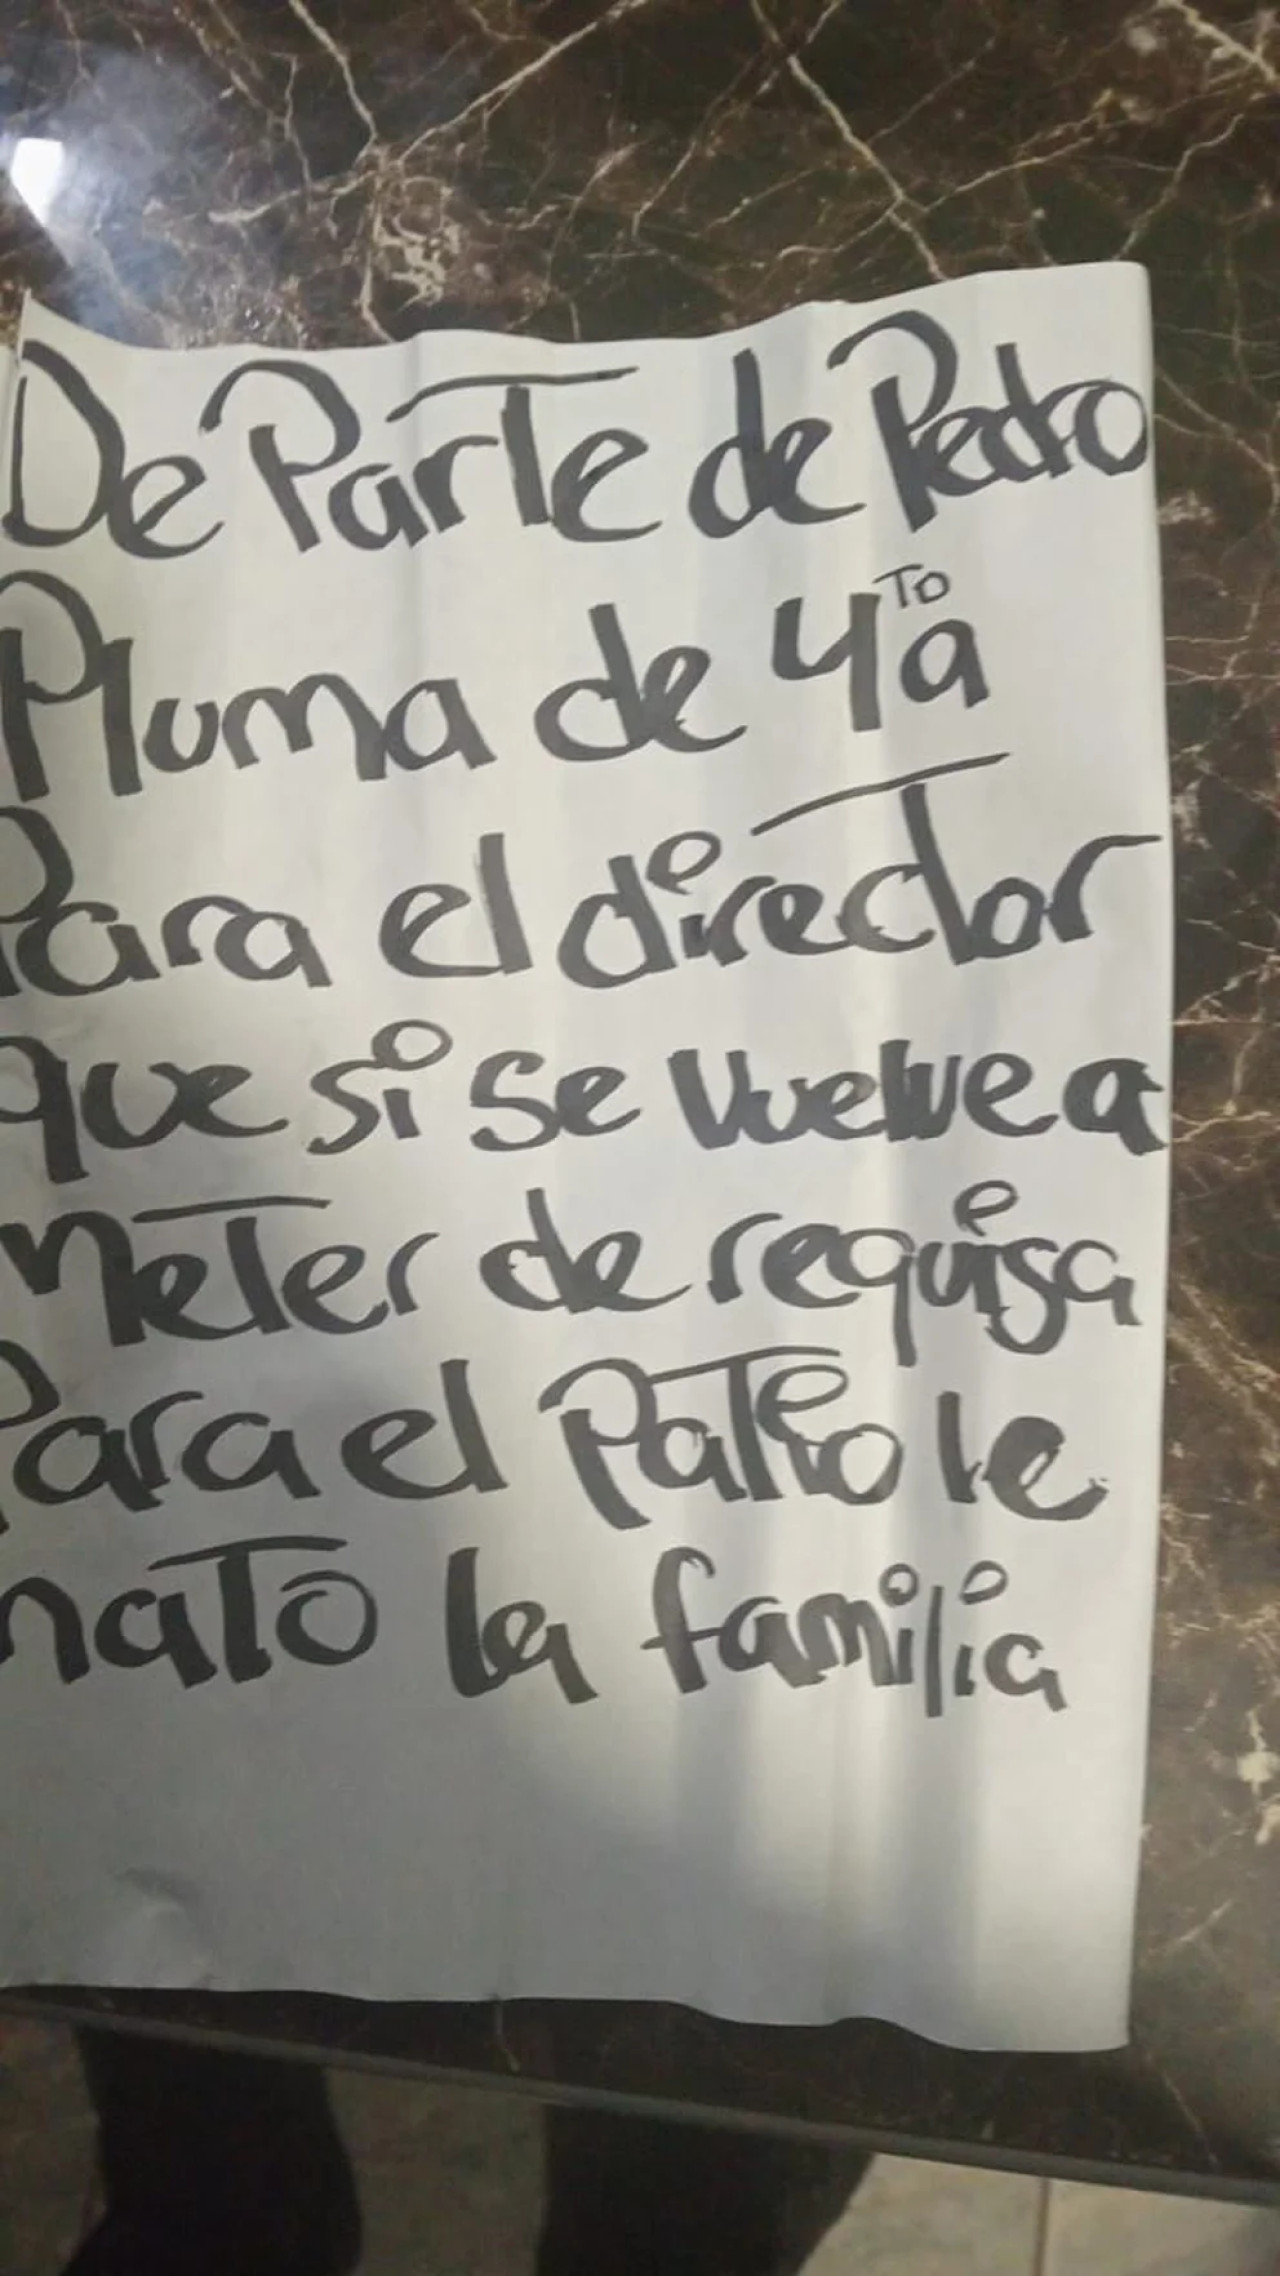 De Parte de Pedro
Pluma de 4a To
Para el director
que si se vuelve a
meter de requisa
Para el Patio le
mato la familia